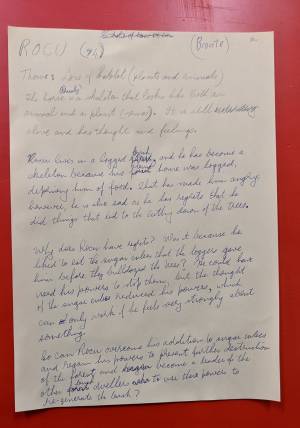 ROCU (94) (Bronte)
Theme: Loss of habitat (plants and animals)
The horse is a skeleton that looks like both an
animal and a plant (). It is still
alive and has thoughts and feelings.
Rocu lives in a logged bush, and he has become a
skeleton because his forest home was logged,
depriving him of food. That has made him angry;
however, he is also sad as he has regrets that he
did things that led to the cutting down of the trees.
Why does Rocu have regrets? Was it because he
liked to eat the sugar cubes that the loggers gave
him before they bulldozed the trees? He could have
used his powers to stop them, but the thought
of the sugar cubes reduced his powers, which
can only work if he feels very strongly about
something.
So can Rocu overcome his addiction to sugar cubes
and regain his powers to prevent further destruction
of the forest and become a leader of the
other bush dwellers to use their powers to
re-generate the bush?